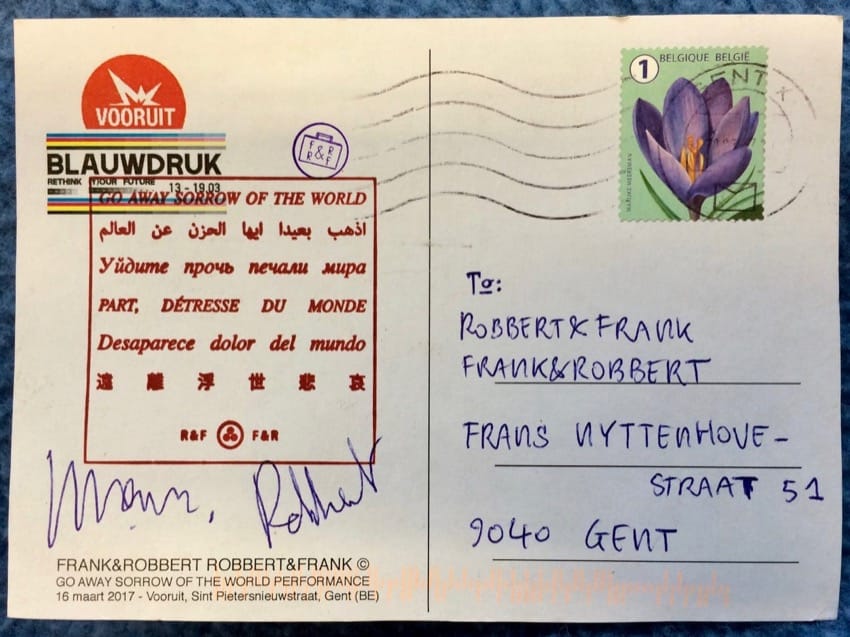 VOORUIT
BLAUWDRUK
RETHINK YOUR FUTURE
13 - 19.03
F & R
R & F
GO AWAY SORROW OF THE WORLD
اذهب بعيدا ايها الحزن عن العالم
Уйдите прочь печали мира
PART, DÉTRESSE DU MONDE
Desaparece dolor del mundo
遠離浮世悲哀
R&F F&R
Robbert
FRANK&ROBBERT ROBBERT&FRANK ©
GO AWAY SORROW OF THE WORLD PERFORMANCE
16 maart 2017 - Vooruit, Sint Pietersnieuwstraat, Gent (BE)
1
BELGIQUE BELGIË
GENT X
To:
ROBBERT&FRANK
FRANK&ROBBERT
FRANS UYTTENHOVE-
STRAAT 51
9040 GENT